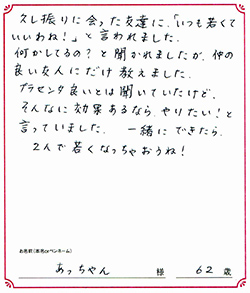 久し振りに会った友達に、「いつも若くて
いいわね!」と言われました。
何かしてるの?と聞かれましたが、仲の
良い友人にだけ教えました。
プラセンタ良いとは聞いていたけど、
そんなに効果あるなら、やりたい!と
言っていました。 一緒にできたら、
2人で若くなっちゃおうね!
お名前(本名orペンネーム)
あっちゃん 様 62歳